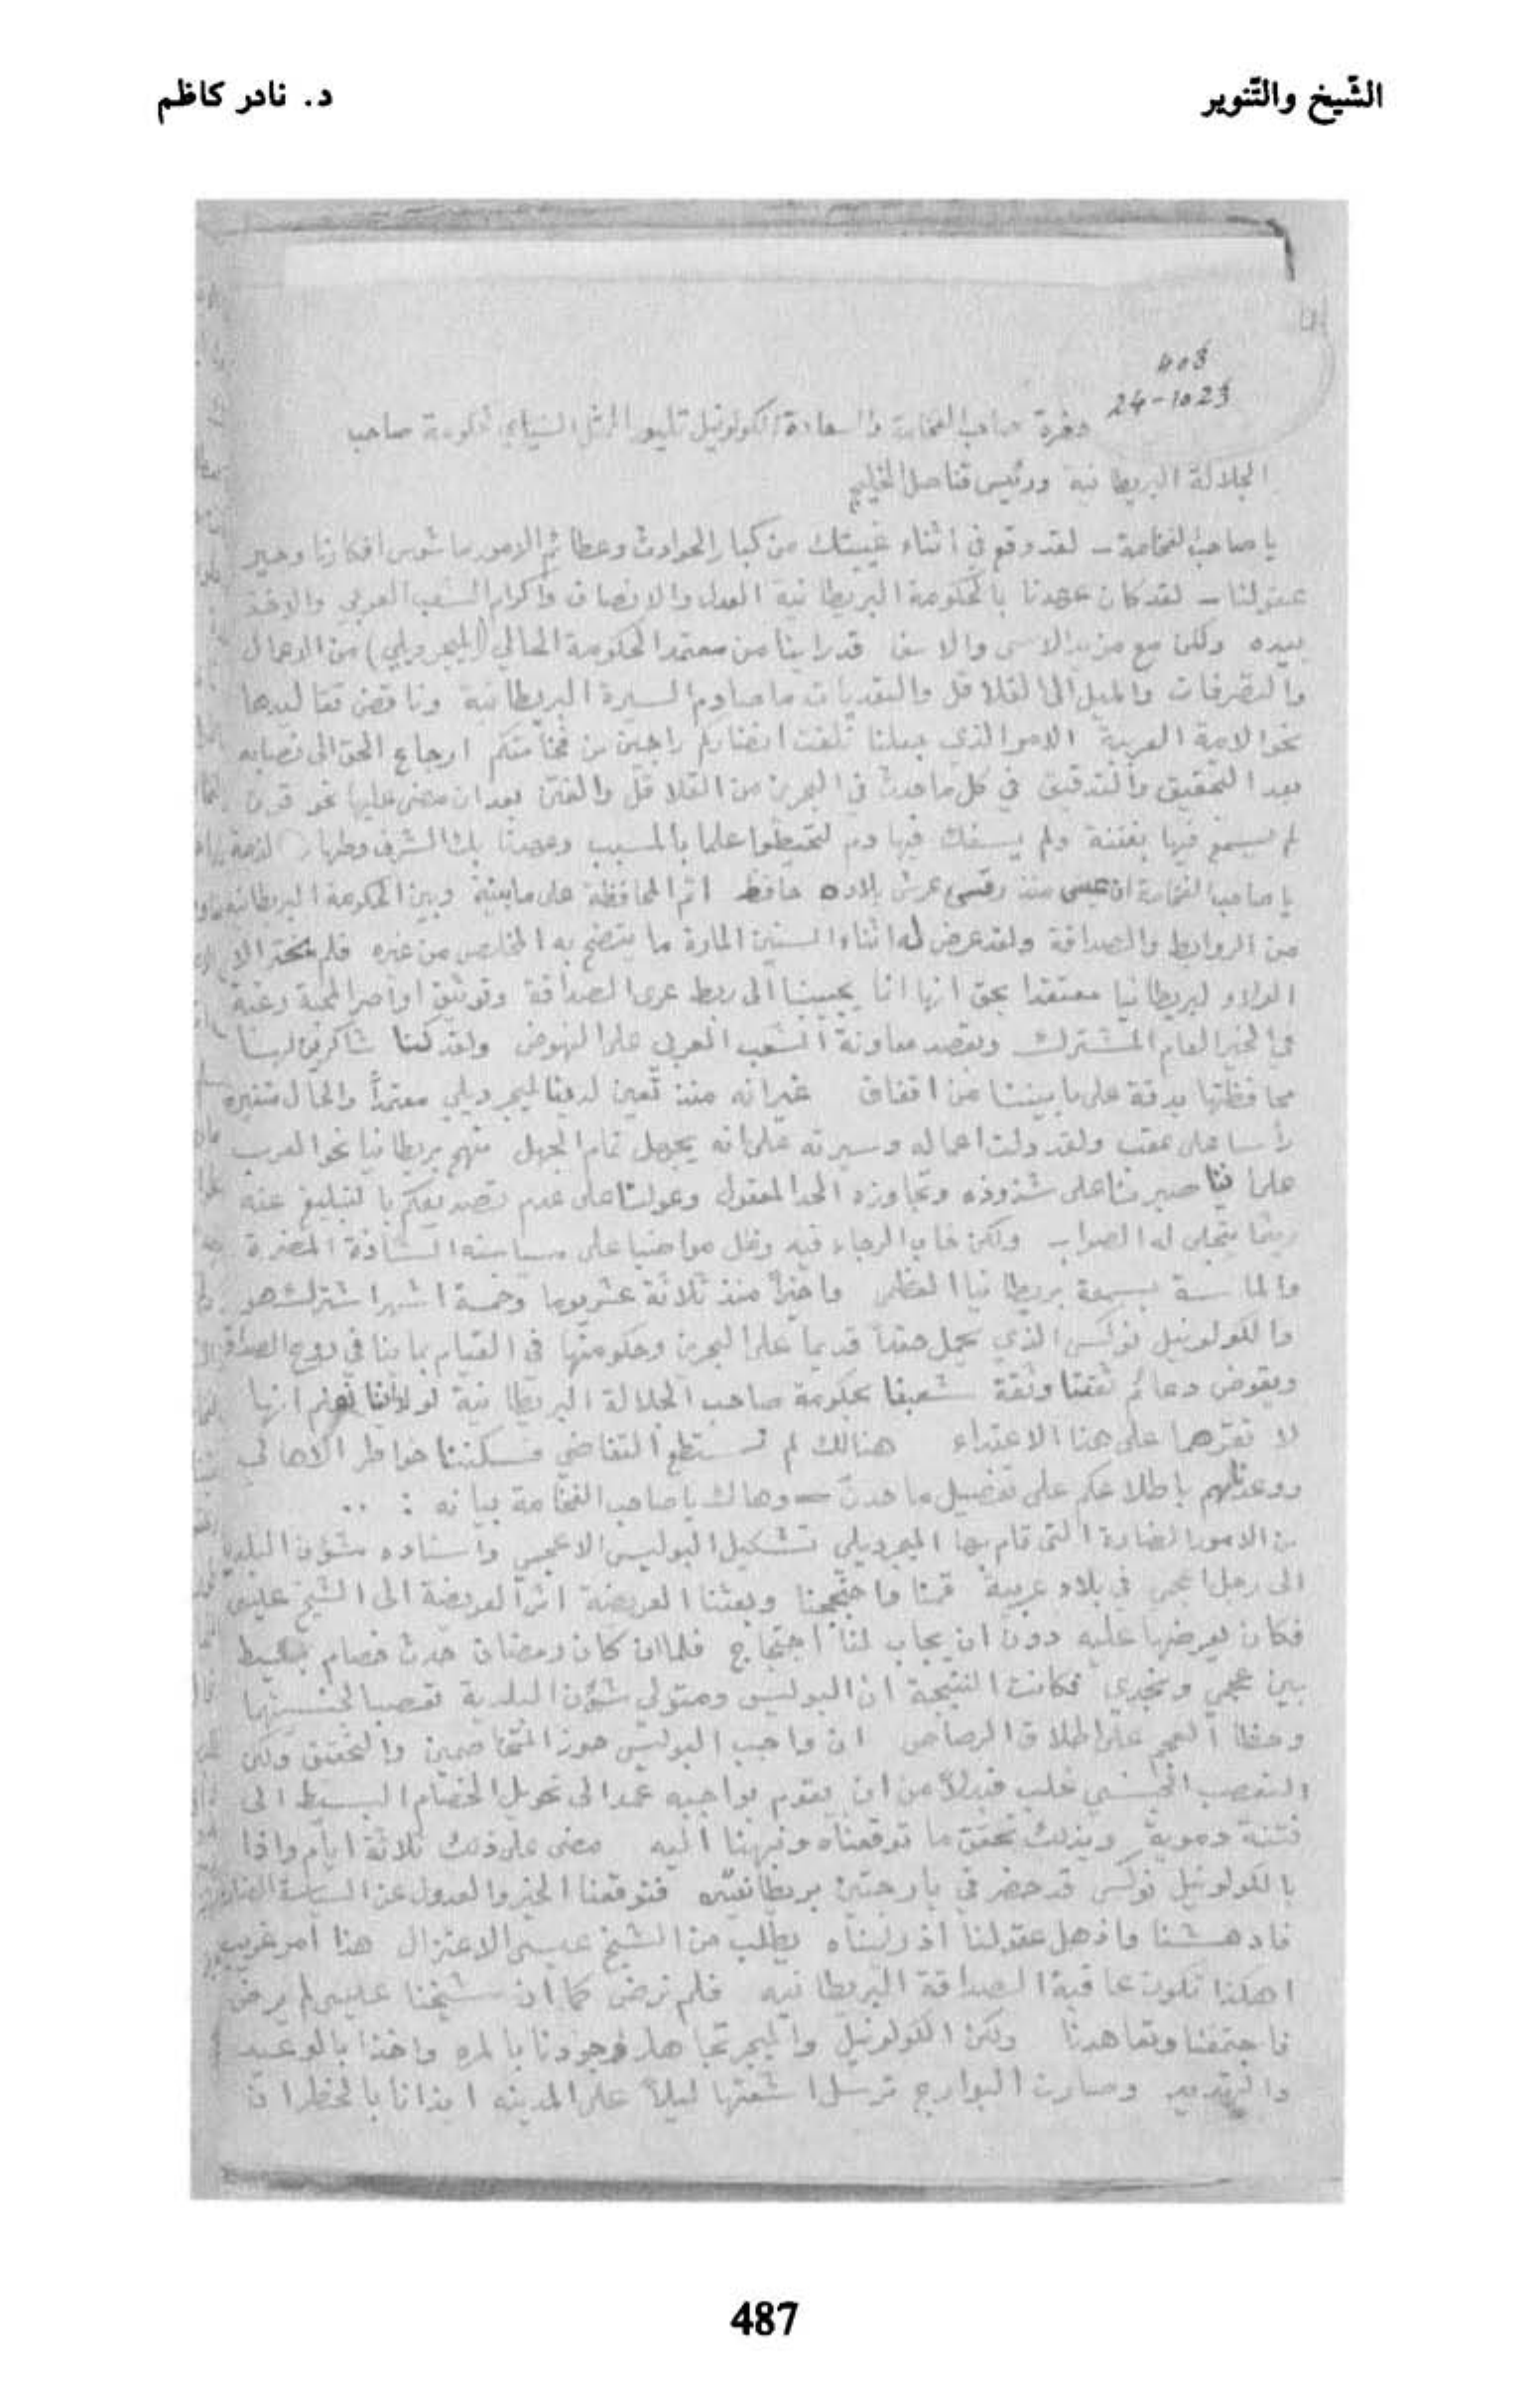 الشّيخ والتّنوير
د. نادر كاظم
403
24-10 23
حضرة صاحب الفخامة والسعادة الكولونيل تليور الممثل السياسي لحكومة صاحب
الجلالة البريطانية ورئيس قناصل الخليج
يا صاحب الفخامة – لقد وقع في اثناء غيبتك من كبار الحوادث وعظائم الامور ما شوس افكارنا وحير
عقولنا – لقد كان عهدنا بالحكومة البريطانية العدل والانصاف واكرام الشعب العربي والاخذ
بيده ولكن مع مزيد الاسى والاسف قد راينا من معتمد الحكومة الحالي (الميجر ديلي) من الاعمال
والتصرفات والميل الى القلاقل والتعديات ما صادم السيرة البريطانية وناقض تقاليدها
نحو الامة العربية الامر الذي جعلنا نلفت انضاركم راجين من فخامتكم ارجاع الحق الى نصابه
بعد التحقيق والتدقيق في كل ما حدث في البحرين من القلاقل والفتن بعد ان مضى عليها نحو قرن
لم يسمع فيها بفتنة ولم يسفك فيها دم لتحيطوا علما بالمسبب وعهدنا بك الشرف وطهارة الذمة
يا صاحب الفخامة ان عيسى منذ رقى عرش بلاده حافظ اتم المحافظة على ما بينه وبين الحكومة البريطانية
من الروابط والصداقة ولقد عرض له اثناء السنين المارة ما يتضح به المخلص من غيره فلم يختر الا
الولاء لبريطانيا معتقدا بحق انها انما يحببنا الى ربط عرى الصداقة وتوثيق اواصر المحبة رغبة
في الخير العام المشترك وبقصد معاونة الشعب العربي على النهوض ولقد كنا شاكرين لها
محافظتها بدقة على ما بيننا من اتفاق غير انه منذ تعين لدينا الميجر ديلي معتمداً والحال متغيرة
رأسا على عقب ولقد دلت اعماله وسيرته على انه يجهل تمام الجهل منهج بريطانيا نحو العرب
على اننا صبرنا على شذوذه وتجاوزه الحد المعقول وعولنا على عدم تصديعكم بالتبليغ عنه
ريثما يتجلى له الصواب ولكن خاب الرجاء فيه وظل مواضبا على سياسته الشاذة المضرة
والماسة بسمعة بريطانيا العظمى واخيراً منذ ثلاثة عشر يوما وخمسة اشهر اشترك هو
والكولونيل نوكس الذي يحمل حقداً قديما على البحرين وحكومتها في القيام بما ينافي روح الصداقة
ويقوض دعائم ثقتنا وثقة شعبنا بحكومة صاحب الجلالة البريطانية لولا اننا نعلم انها
لا تقرهما على هذا الاعتداء هنالك لم نستطع التغاضي فسكننا خواطر الاهالي
ووعدناهم باطلاعكم على تفصيل ما حدث – وهاك يا صاحب الفخامة بيانه : ..
من الامور الضارة التي قام بها الميجر ديلي تشكيل البوليس الاعجمي واسناده شؤون البلدية
الى رجل اعجمي في بلاد عربية قمنا واحتججنا وبعثنا العريضة اثر العريضة الى الشيخ عيسى
فكان يعرضها عليه دون ان يجاب لنا احتجاج فلما ان كان رمضان حدث خصام بسيط
بين عجمي ونجدي فكانت النتيجة ان البوليس ومتولي شؤون البلدية تعصبا لجنسيتهما
وحظا العجم على اطلاق الرصاص ان واجب البوليس حوز المتخاصمين والتحقيق ولكن
التعصب الجنسي غلب فبدلاً من ان يقوم بواجبه عمد الى تحويل الخصام البسيط الى
فتنة دموية وبذلك تحقق ما توقعناه ونبهنا اليه مضى على ذلك ثلاثة ايام واذا
بالكولونيل نوكس قد حضر في بارجتين بريطانيتين فتوقعنا الخير والعدول عن السياسة
فادهشنا واذهل عقولنا اذ رايناه يطلب من الشيخ عيسى الاعتزال هذا امر غريب
اهكذا تكون عاقبة الصداقة البريطانية فلم نرض كما ان شيخنا عيسى لم يرض
فاجتمعنا وتعاهدنا ولكن الكولونيل والميجر تجاهلا وجودنا بالمره واخذا بالوعيد
والتهديد وصارت البوارج ترسل اشعتها ليلاً على المدينه ايذانا بالخطر ان
487